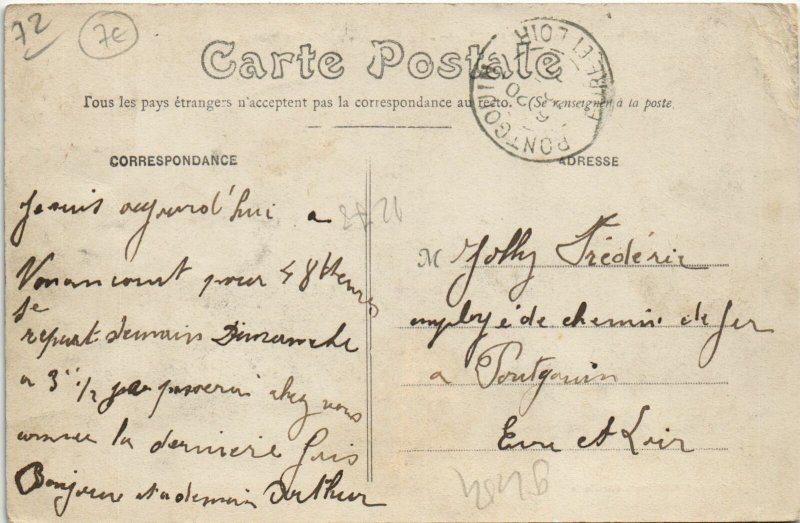 72
7€
Carte Postale
Tous les pays étrangers n'acceptent pas la correspondance au recto. (Se renseigner à la poste.
PONTGOUIN EURE ET LOIR
CORRESPONDANCE
ADRESSE
Je suis aujourd'hui a
Vonancourt pour 48 heures
je
repart demain Dimanche
a 3" 1/2 je passerai chez vous
comme la derniere fois
Bonjour et a demain Arthur
M Jolly Frédéric
employé de chemin de fer
a Pontgouin
Eure et Loir